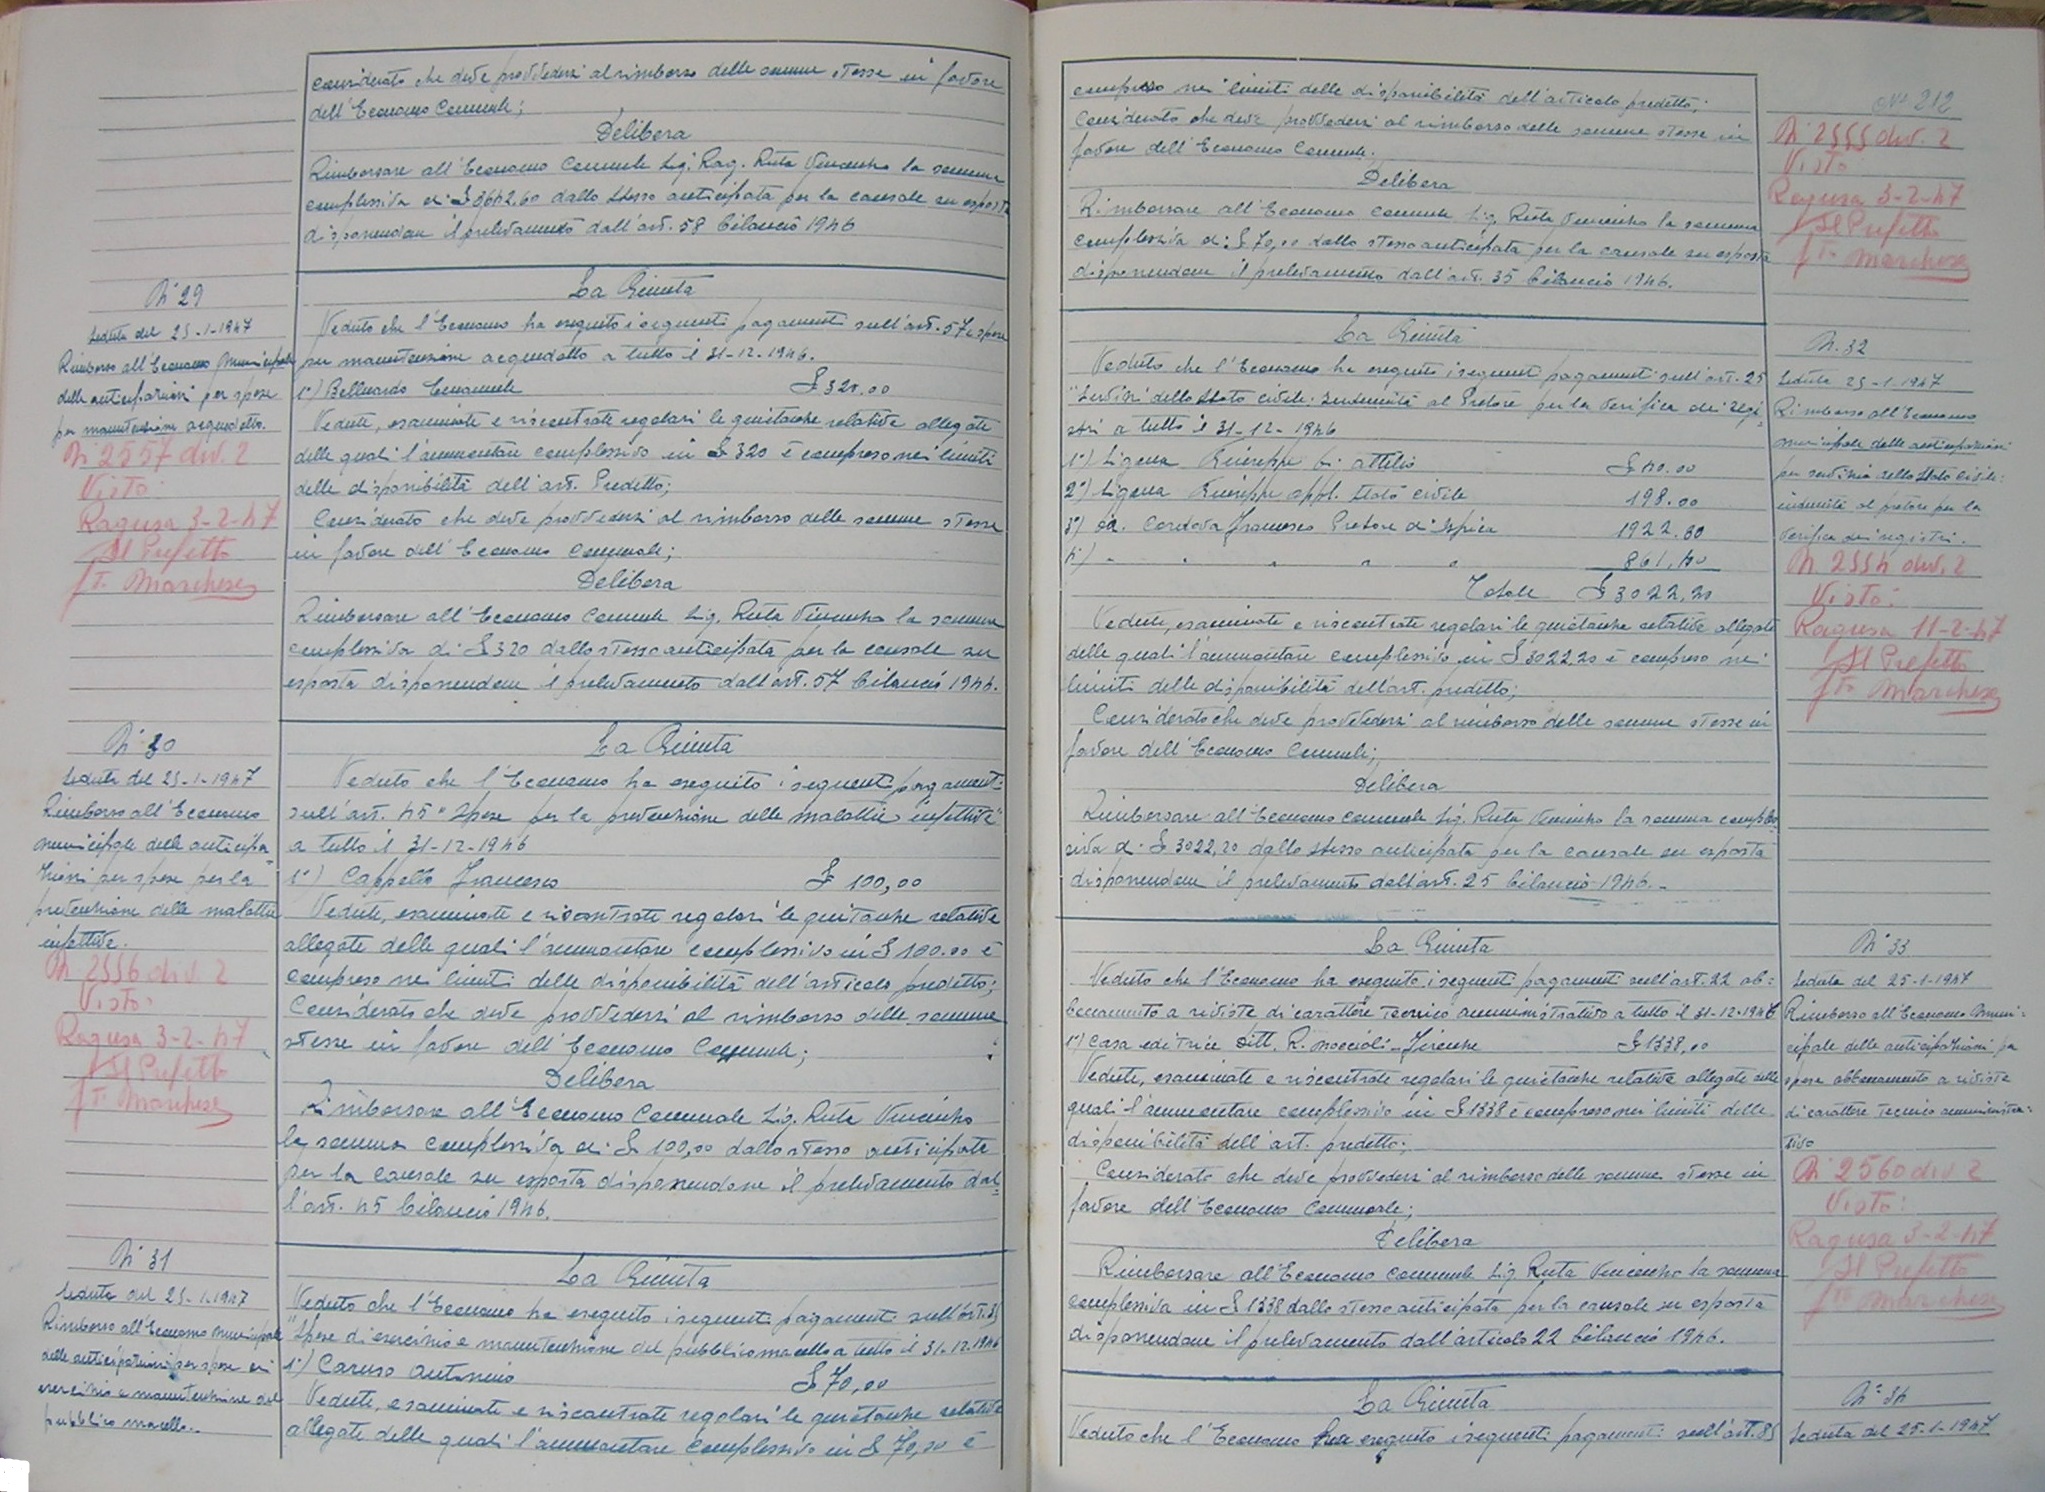 considerato che deve provvedersi al rimborso delle somme stesse in favore
dell'Economo Comunale;
Delibera
Rimborsare all'Economo Comunale Sig. Rag. Ruta Vincenzo la somma
complessiva di £ 3642,60 dallo stesso anticipata per la causale su esposta
disponendone il prelevamento dall'art. 58 bilancio 1946
N° 29
Seduta del 25-1-1947
Rimborso all'Economo Municipale
delle anticipazioni per spese
per manutenzione acquedotto.
N 2557 div. 2
Visto:
Ragusa 3-2-47
Il Prefetto
f.to Marchese
La Giunta
Veduto che l'Economo ha eseguito i seguenti pagamenti sull'art. 57 spese
per manutenzione acquedotto a tutto il 31-12-1946.
1°) Belluardo Emanuele £ 320.00
Vedute, esaminate e riscontrate regolari le quietanze relative allegate
delle quali l'ammontare complessivo in £ 320 è compreso nei limiti
delle disponibilità dell'art. Predetto;
Considerato che deve provvedersi al rimborso delle somme stesse
in favore dell'Economo Comunale;
Delibera
Rimborsare all'Economo Comunale Sig. Ruta Vincenzo la somma
complessiva di £ 320 dallo stesso anticipata per la causale su
esposta disponendone il prelevamento dall'art. 57 bilancio 1946.
N° 30
Seduta del 25-1-1947
Rimborso all'Economo
municipale delle anticipa-
zioni per spese per la
prevenzione delle malattie
infettive.
N 2556 div. 2
Visto:
Ragusa 3-2-47
Il Prefetto
f.to Marchese
La Giunta
Veduto che l'Economo ha eseguito i seguenti pagamenti
sull'art. 45 "Spese per la prevenzione delle malattie infettive"
a tutto il 31-12-1946
1°) Cappello Francesco £ 100,00
Vedute, esaminate e riscontrate regolari le quitanze relative
allegate delle quali l'ammontare complessivo in £ 100.00 è
compreso nei limiti delle disponibilità dell'articolo predetto;
Considerato che deve provvedersi al rimborso delle somme
stesse in favore dell'Economo Comunale;
Delibera
Rimborsare all'Economo Comunale Sig. Ruta Vincenzo
la somma complessiva di £ 100,00 dallo stesso anticipate
per la causale su esposta disponendone il prelevamento dal-
l'art. 45 bilancio 1946.
N° 31
Seduta del 25-1-1947
Rimborso all'Economo Municipale
delle anticipazioni per spese di
esercizio e manutenzione del
pubblico macello.
La Giunta
Veduto che l'Economo ha eseguito i seguenti pagamenti sull'art. 35
"Spese di esercizio e manutenzione del pubblico macello a tutto il 31-12-1946
1°) Caruso Antonino £ 70,00
Vedute, esaminate e riscontrate regolari le quietanze relative
allegate delle quali l'ammontare complessivo in £ 70,00 è
compreso nei limiti delle disponibilità dell'articolo predetto;
Considerato che deve provvedersi al rimborso delle somme stesse in
favore dell'Economo Comunale.
Delibera
Rimborsare all'Economo Comunale Sig. Ruta Vincenzo la somma
complessiva di £ 70,00 dallo stesso anticipata per la causale su esposta
disponendone il prelevamento dall'art. 35 bilancio 1946.
212
N° 2555 div. 2
Visto
Ragusa 3-2-47
Il Prefetto
f.to Marchese
La Giunta
Veduto che l'Economo ha eseguito i seguenti pagamenti sull'art. 25
"Servizi dello Stato civile: indennità al Pretore per la verifica dei regi-
stri a tutto il 31-12-1946
1°) Ligena Giuseppe fu Attilio £ 40.00
2°) Ligena Giuseppe appl. Stato civile 198.00
3°) Cordova Francesco Pretore di Ispica 1922.80
4°) " " " " " 861,40
Totale £ 3022,20
Vedute, esaminate e riscontrate regolari le quietanze relative allegate
delle quali l'ammontare complessivo in £ 3022,20 è compreso nei
limiti delle disponibilità dell'art. predetto;
Considerato che deve provvedersi al rimborso delle somme stesse in
favore dell'Economo Comunale;
Delibera
Rimborsare all'Economo Comunale Sig. Ruta Vincenzo la somma comples-
siva di £ 3022,20 dallo stesso anticipata per la causale su esposta
disponendone il prelevamento dall'art. 25 bilancio 1946.
N. 32
Seduta 25-1-1947
Rimborso all'Economo
municipale delle anticipazioni
per servizio dello Stato civile:
indennità al pretore per la
verifica dei registri.
N 2554 div. 2
Visto:
Ragusa 11-2-47
Il Prefetto
f.to Marchese
La Giunta
Veduto che l'Economo ha eseguito i seguenti pagamenti sull'art. 22 ab-
bonamento a riviste di carattere tecnico amministrativo a tutto il 31-12-1946
1°) Casa editrice Ditt. R. Noccioli - Firenze £ 1338,00
Vedute, esaminate e riscontrate regolari le quietanze relative allegate delle
quali l'ammontare complessivo in £ 1338 è compreso nei limiti delle
disponibilità dell'art. predetto;
Considerato che deve provvedersi al rimborso delle somme stesse in
favore dell'Economo Comunale;
Delibera
Rimborsare all'Economo Comunale Sig. Ruta Vincenzo la somma
complessiva in £ 1338 dallo stesso anticipata per la causale su esposta
disponendone il prelevamento dall'articolo 22 bilancio 1946.
N° 33
Seduta del 25-1-1947
Rimborso all'Economo Muni-
cipale delle anticipazioni per
spese abbonamento a riviste
di carattere tecnico amministra-
tivo
N° 2560 div 2
Visto:
Ragusa 3-2-47
Il Prefetto
f.to Marchese
La Giunta
Veduto che l'Economo ha eseguito i seguenti pagamenti sull'art. 85
N° 34
Seduta del 25-1-1947